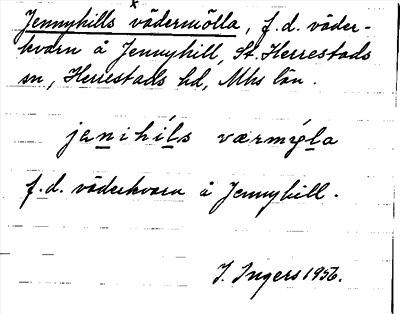 Jennyhills vädermölla, f.d. väder-
kvarn å Jennyhill, St. Herrestads
sn, Herrestads hd, Mhs län.
jenihils værmýla
f.d. väderkvarn å Jennyhill.
I. Ingers 1956.